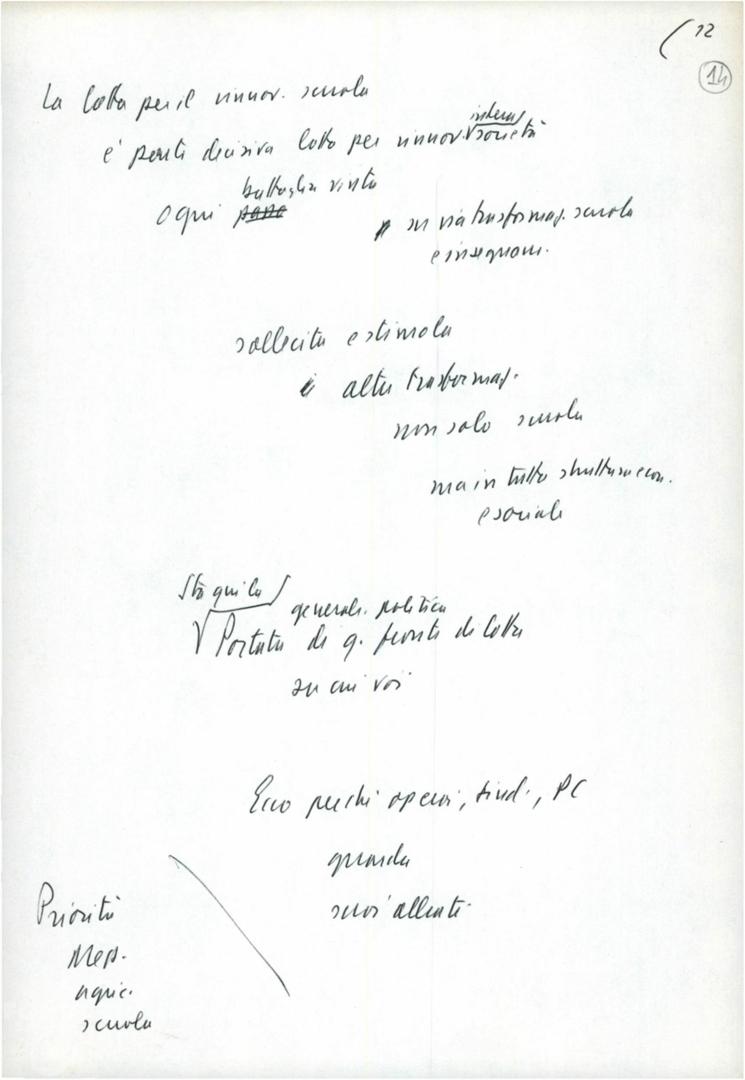 12
14
La lotta per il rinnov. scuola
è parte decisiva lotta per rinnov. intera società
ogni battaglia vinta
su via trasformaz. scuola
e insegnam.
sollecita e stimola
altre trasformaz.
non solo scuola
ma in tutte strutture econ.
e sociali
Sta qui la
generale politica
Portata di q. fronte di lotta
su cui voi
Ecco perché operai, sind., PC
guarda
suoi alleati
Priorità
Mezz.
agric.
scuola